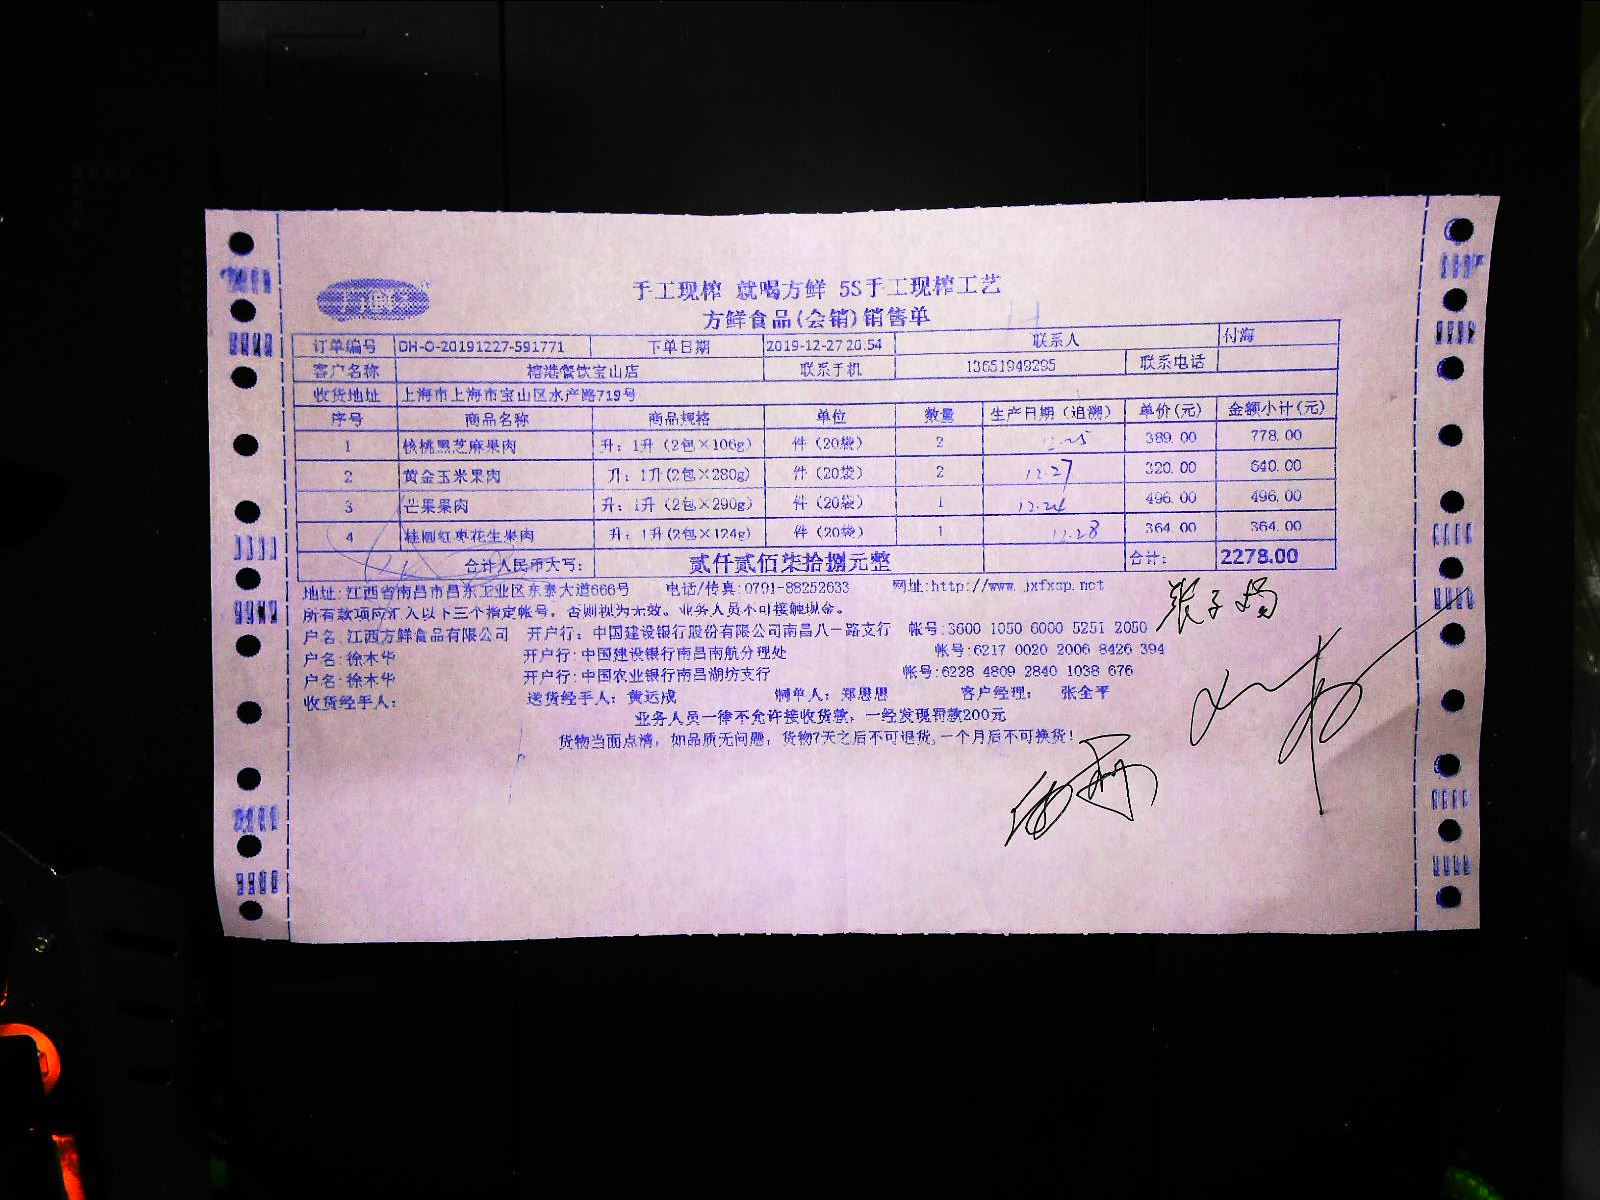 手工现榨 就喝方鲜 5S手工现榨工艺
方鲜食品(会销)销售单
订单编号 DH-O-20191227-591771 下单日期 2019-12-27 20:54 联系人 付海
客户名称 榕港餐饮宝山店 联系手机 13651949295 联系电话
收货地址 上海市上海市宝山区水产路719号
序号 商品名称 商品规格 单位 数量 生产日期（追溯） 单价(元) 金额小计(元)
1 核桃黑芝麻果肉 升：1升 (2包×106g) 件（20袋） 2 12.25 389.00 778.00
2 黄金玉米果肉 升：1升(2包×280g) 件（20袋） 2 12.27 320.00 640.00
3 芒果果肉 升：1升 (2包×290g) 件（20袋） 1 496.00 496.00
4 桂圆红枣花生果肉 升：1升(2包×124g) 件（20袋） 1 12.28 364.00 364.00
合计人民币大写： 贰仟贰佰柒拾捌元整 合计： 2278.00
地址：江西省南昌市昌东工业区东泰大道666号 电话/传真:0791-88252633 网址:http://www.jxfxsp.net
所有款项应汇入以下三个指定帐号，否则视为无效。业务人员不可接触现金。
户名:江西方鲜食品有限公司 开户行：中国建设银行股份有限公司南昌八一路支行 帐号:3600 1050 6000 5251 2050
户名:徐木华 开户行:中国建设银行南昌南航分理处 帐号:6217 0020 2006 8426 394
户名:徐木华 开户行:中国农业银行南昌湖坊支行 帐号:6228 4809 2840 1038 676
收货经手人： 送货经手人：黄运成 制单人：郑思思 客户经理： 张全平
业务人员一律不允许接收货款，一经发现罚款200元
货物当面点清，如品质无问题，货物7天之后不可退货,一个月后不可换货！